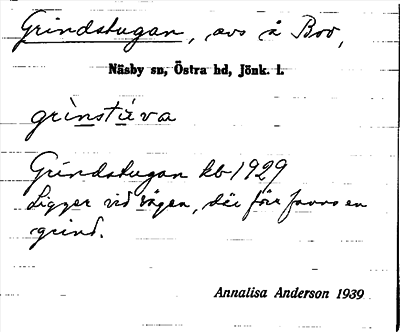 Grindstugan, avs å Boo,
Näsby sn, Östra hd, Jönk. l.
grinstuva
Grindstugan kb 1929
Ligger vid vägen, där förr fanns en
grind.
Annalisa Anderson 1939